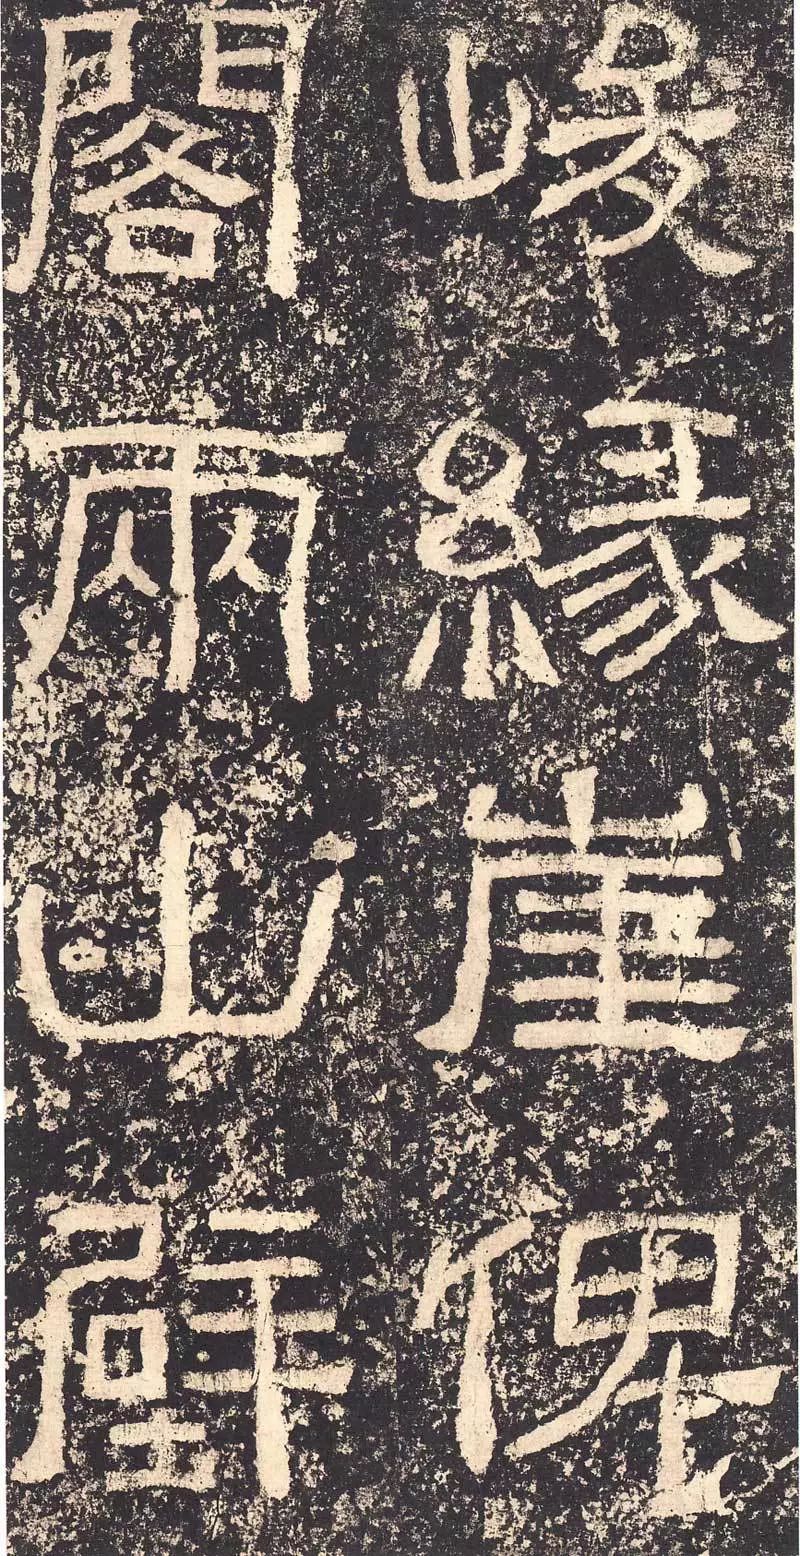 峻緣崖俾
閣兩山壁